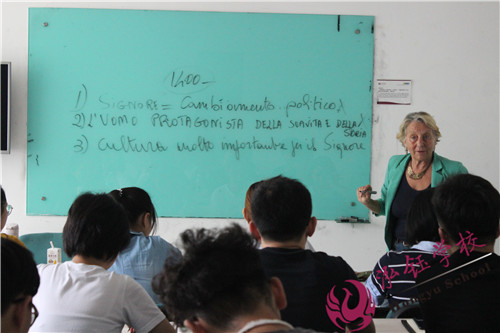 1400
1) SIGNORE = Cambiamento politico
2) L'UOMO PROTAGONISTA DELLA SUA VITA E DELLA
STORIA
3) Cultura molto importante per il Signore
弘钰学校
Hongyu School